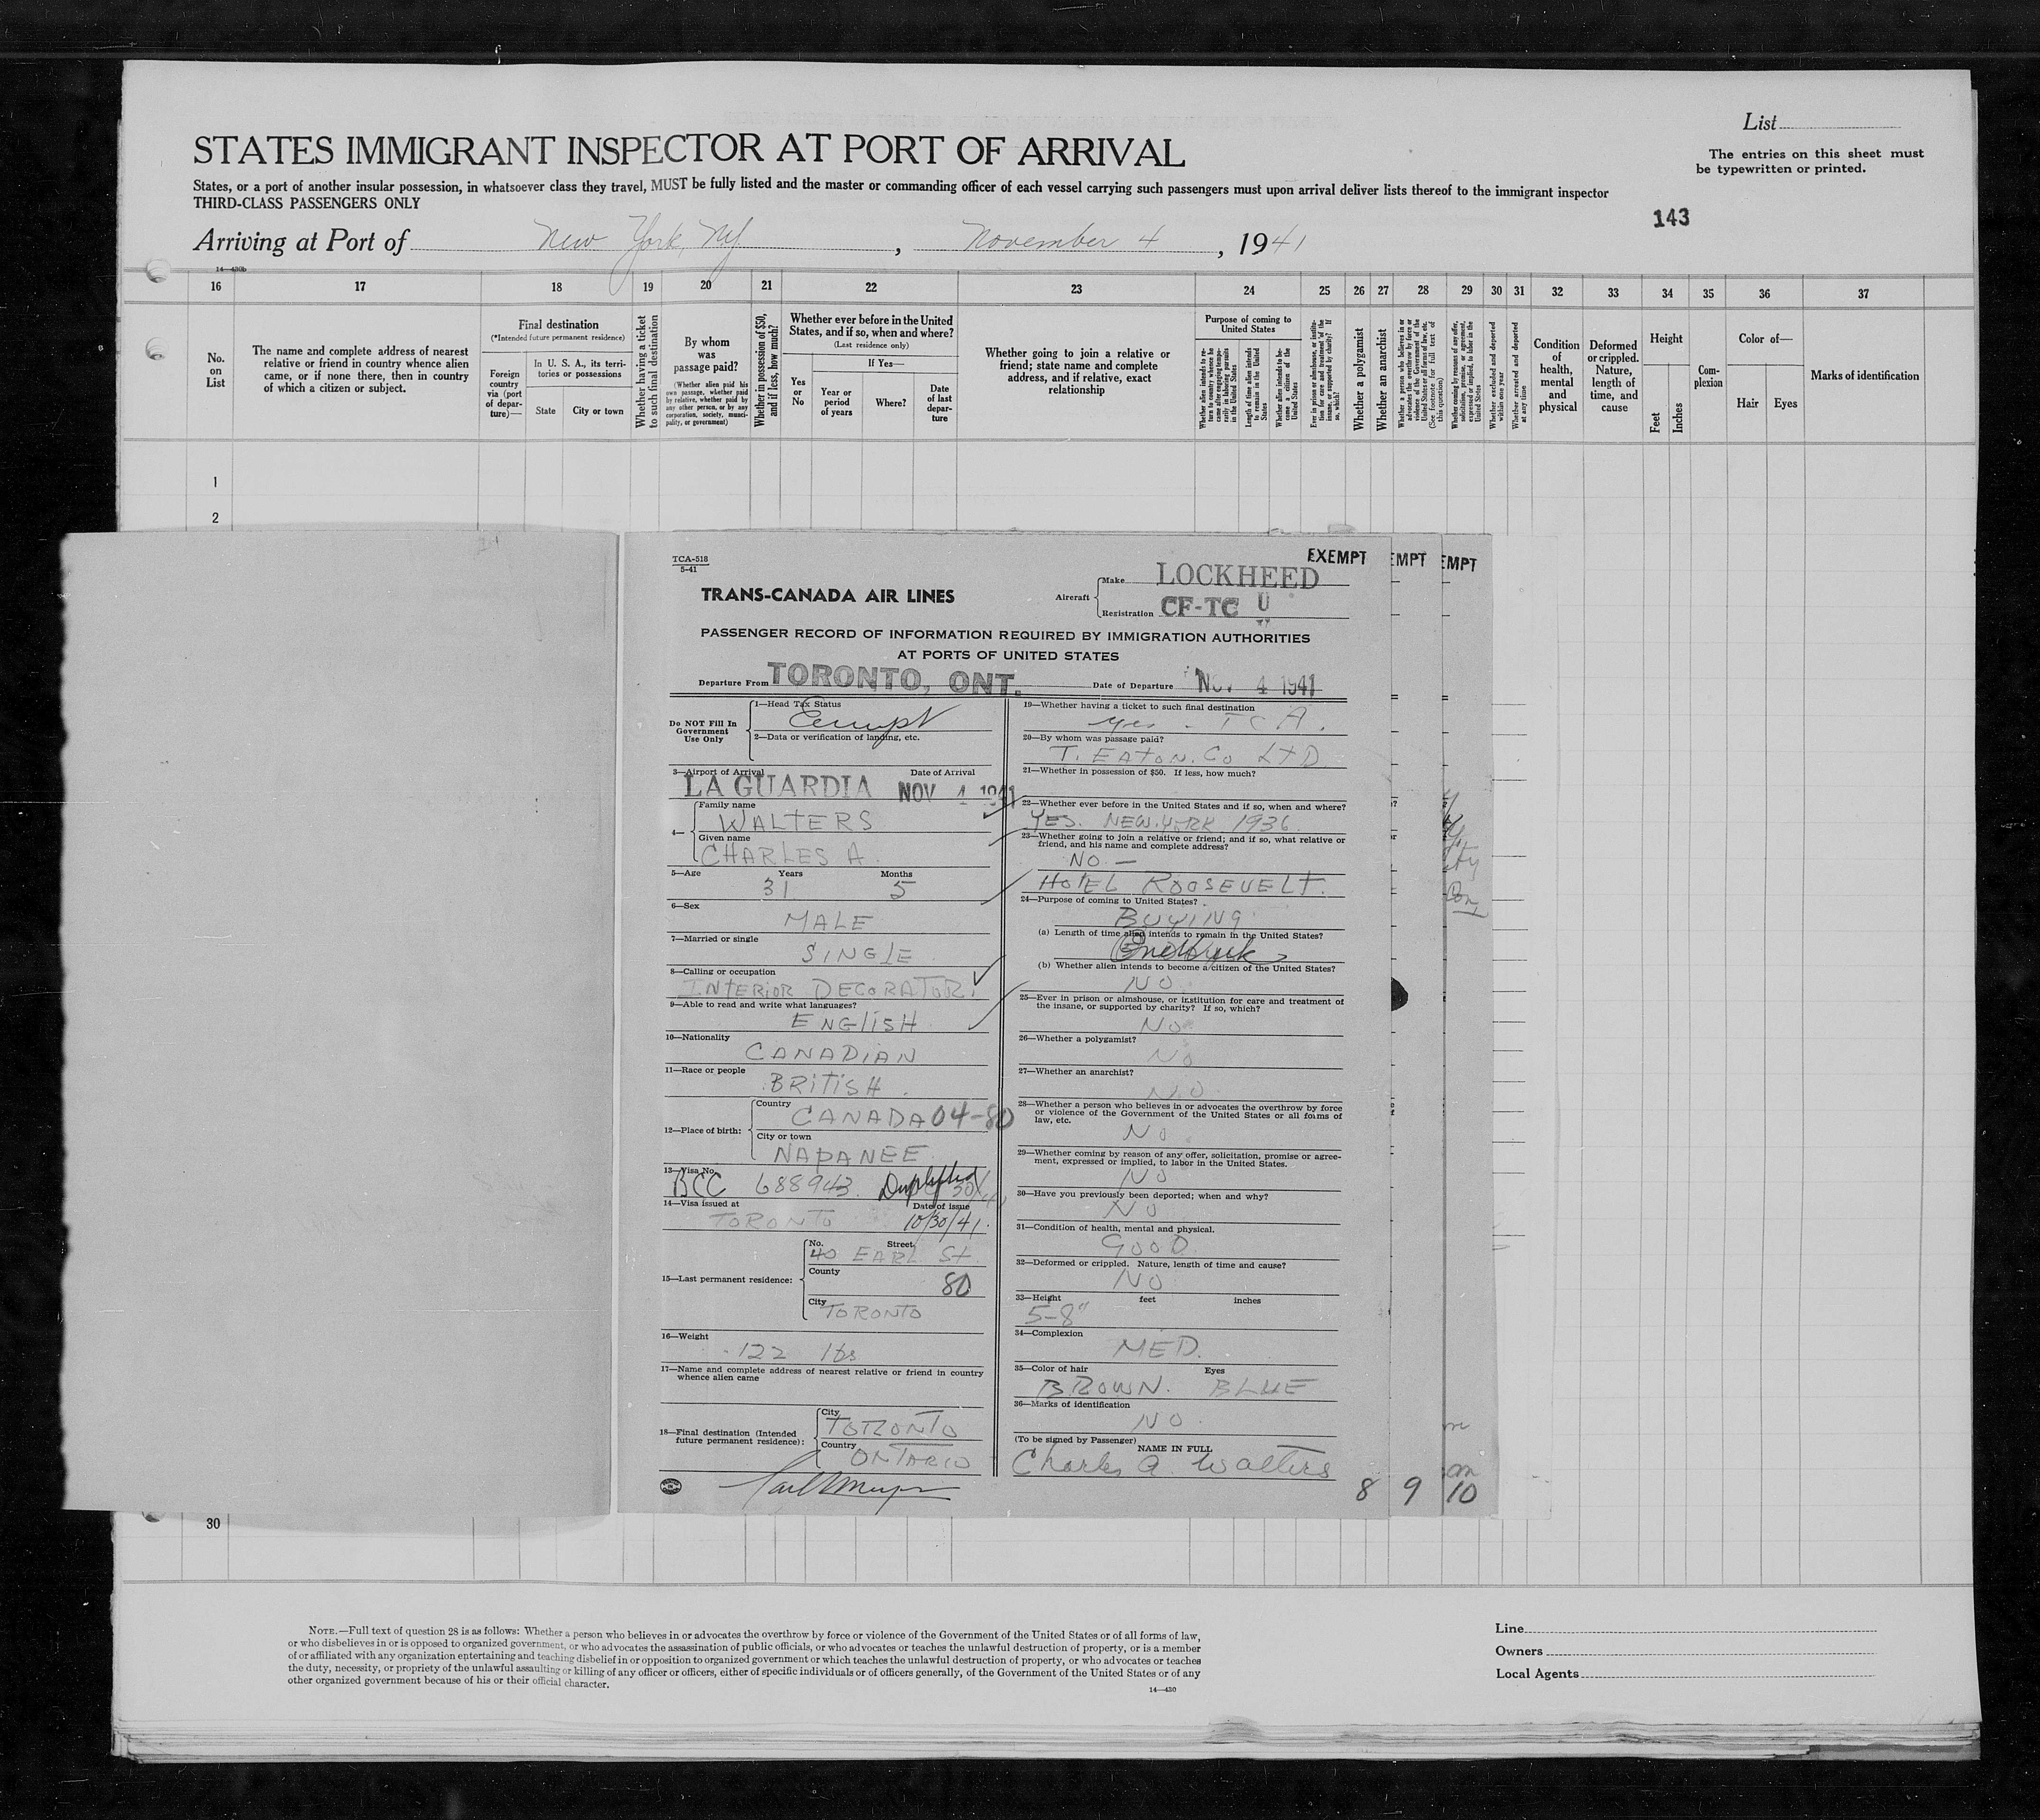 List
STATES IMMIGRANT INSPECTOR AT PORT OF ARRIVAL
The entries on this sheet must
be typewritten or printed.
States, or a port of another insular possession, in whatsoever class they travel, MUST be fully listed and the master or commanding officer of each vessel carrying such passengers must upon arrival deliver lists thereof to the immigrant inspector
THIRD-CLASS PASSENGERS ONLY
143
Arriving at Port of New York, NY, November 4, 1941
14—430b
16 17 18 19 20 21 22 23 24 25 26 27 28 29 30 31 32 33 34 35 36 37
No. on List
The name and complete address of nearest relative or friend in country whence alien came, or if none there, then in country of which a citizen or subject.
Final destination
(*Intended future permanent residence)
Foreign country via (port of departure)—
In U. S. A., its territories or possessions
State
City or town
Whether having a ticket to such final destination
By whom was passage paid?
(Whether alien paid his own passage, whether paid by relative, whether paid by any other person, or by any corporation, society, municipality, or government)
Whether in possession of $50, and if less, how much?
Whether ever before in the United States, and if so, when and where?
(Last residence only)
If Yes—
Yes or No
Year or period of years
Where?
Date of last departure
Whether going to join a relative or friend; state name and complete address, and if relative, exact relationship
Purpose of coming to United States
Whether alien intends to return to country whence he came after engaging temporarily in laboring pursuits in the United States
Length of time alien intends to remain in the United States
Whether alien intends to become a citizen of the United States
Ever in prison or almshouse, or institution for care and treatment of the insane, or supported by charity? If so, which?
Whether a polygamist
Whether an anarchist
Whether a person who believes in or advocates the overthrow by force or violence of the Government of the United States or all forms of law, etc. (See footnote for full text of this question)
Whether coming by reason of any offer, solicitation, promise, or agreement, expressed or implied, to labor in the United States
Whether excluded and deported within one year
Whether arrested and deported at any time
Condition of health, mental and physical
Deformed or crippled. Nature, length of time, and cause
Height
Feet
Inches
Complexion
Color of—
Hair
Eyes
Marks of identification
1
2
TCA-518
5-41
EXEMPT
EMPT
EMPT
TRANS-CANADA AIR LINES
Aircraft
Make LOCKHEED
Registration CF-TC U
PASSENGER RECORD OF INFORMATION REQUIRED BY IMMIGRATION AUTHORITIES
AT PORTS OF UNITED STATES
Departure From TORONTO, ONT.
Date of Departure NOV 4 1941
Do NOT Fill In Government Use Only
1—Head Tax Status
Exempt
2—Data or verification of landing, etc.
3—Airport of Arrival Date of Arrival
LA GUARDIA NOV 4 1941
4— Family name
WALTERS
Given name
CHARLES A.
5—Age Years Months
31 5
6—Sex
MALE
7—Married or single
SINGLE
8—Calling or occupation
INTERIOR DECORATOR.
9—Able to read and write what languages?
ENGLISH
10—Nationality
CANADIAN
11—Race or people
BRITISH.
12—Place of birth:
Country
CANADA 04-80
City or town
NAPANEE
13—Visa No.
BCC 688943.
14—Visa issued at Date of issue
TORONTO 10/30/41.
15—Last permanent residence:
No. Street
40 EARL St
County
80
City
TORONTO
16—Weight
122 lbs
17—Name and complete address of nearest relative or friend in country whence alien came
18—Final destination (Intended future permanent residence):
City
TORONTO
Country
ONTARIO
19—Whether having a ticket to such final destination
yes - TCA.
20—By whom was passage paid?
T. EATON. Co LTD
21—Whether in possession of $50. If less, how much?
22—Whether ever before in the United States and if so, when and where?
YES. NEW YORK 1936
23—Whether going to join a relative or friend; and if so, what relative or friend, and his name and complete address?
NO. —
HOTEL ROOSEVELT.
24—Purpose of coming to United States?
BUYING
(a) Length of time alien intends to remain in the United States?
One Week
(b) Whether alien intends to become a citizen of the United States?
NO
25—Ever in prison or almshouse, or institution for care and treatment of the insane, or supported by charity? If so, which?
NO
26—Whether a polygamist?
NO
27—Whether an anarchist?
NO
28—Whether a person who believes in or advocates the overthrow by force or violence of the Government of the United States or all forms of law, etc.
NO
29—Whether coming by reason of any offer, solicitation, promise or agreement, expressed or implied, to labor in the United States.
NO
30—Have you previously been deported; when and why?
NO
31—Condition of health, mental and physical.
GOOD
32—Deformed or crippled. Nature, length of time and cause?
NO
33—Height feet inches
5-8"
34—Complexion
MED.
35—Color of hair Eyes
BROWN. BLUE
36—Marks of identification
NO.
(To be signed by Passenger) NAME IN FULL
Charles A Walters
8 9 10
30
NOTE.—Full text of question 28 is as follows: Whether a person who believes in or advocates the overthrow by force or violence of the Government of the United States or of all forms of law,
or who disbelieves in or is opposed to organized government, or who advocates the assassination of public officials, or who advocates or teaches the unlawful destruction of property, or is a member
of or affiliated with any organization entertaining and teaching disbelief in or opposition to organized government or which teaches the unlawful destruction of property, or who advocates or teaches
the duty, necessity, or propriety of the unlawful assaulting or killing of any officer or officers, either of specific individuals or of officers generally, of the Government of the United States or of any
other organized government because of his or their official character.
14—430
Line
Owners
Local Agents